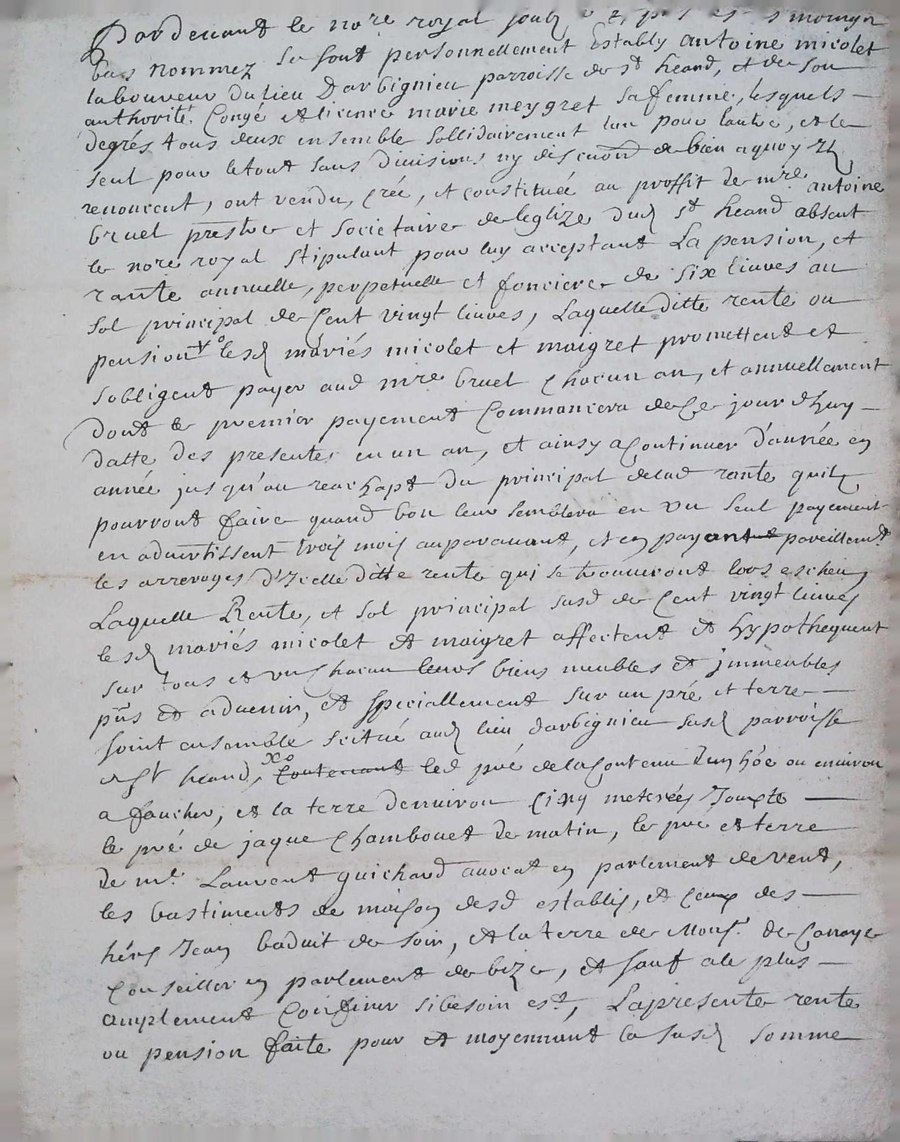 Pardevant le no.re royal
bas nommez se sont personnellement Establÿ antoine micolet
laboureur du lieu Darbignieu parroisse de s.t heand, et de son
authorité. Congé et licence marie meygret sa femme, lesquels
degrés tous deux ensemble sollidairement lun pour lautre, et le
seul pour le tout sans divisions ny discution de bien a quoy ilz
renoncent, ont vendu, créé, et constituée au proffit de m.re antoine
bruel prestre et Societaire de leglize dud. s.t heand absent
le no.re royal stipulant pour luy acceptant La pension, et
rante annuelle, perpetuelle et fonciere de six livres au
sol principal de Cent vingt livres, Laquelle ditte rente ou
pension lesd. mariés micolet et maigret promettent et
sobligent payer aud. m.re bruel Chacun an, et annuellement
dont le premier payement Commancera de Ce jour dhuy
datte des presentes en un an, et ainsy a Continuer d'année en
année jusqu'au reachapt du principal de lad. rante quilz
pourront faire quand bon leur semblera en un seul payement
en advertissent trois mois auparavant, et en payant pareillem.t
les arrerages d'Icelle ditte rente qui se trouveront lors escheu,
Laquelle Rente, et sol principal susd. de Cent vingt livres
lesd. mariés micolet et maigret affectent et hypothequent
sur tous et uns chacun leurs biens meubles et jmmeubles
pñs et advenir, et speciallement sur un pré et terre
joint ensemble scitué aud. lieu darbignieu susd. parroisse
de s.t heand, Contenant led. pré de la Contenu d'un hôe ou environ
a faucher, et la terre denviron Cinq meterées Jouxte
le pré de jaque Chambouet de matin, le pre et terre
de m.e Laurent guichard avocat en parlement de vent,
les bastiments de maison desd. establis, et Ceux des
hers Jean baduit de soir, et la terre de Mons.r de
Conseiller en parlement de bize, et sauf a le plus
amplement Confiner si besoin est, La presente rente
ou pension faite pour et moyennant la susd. somme